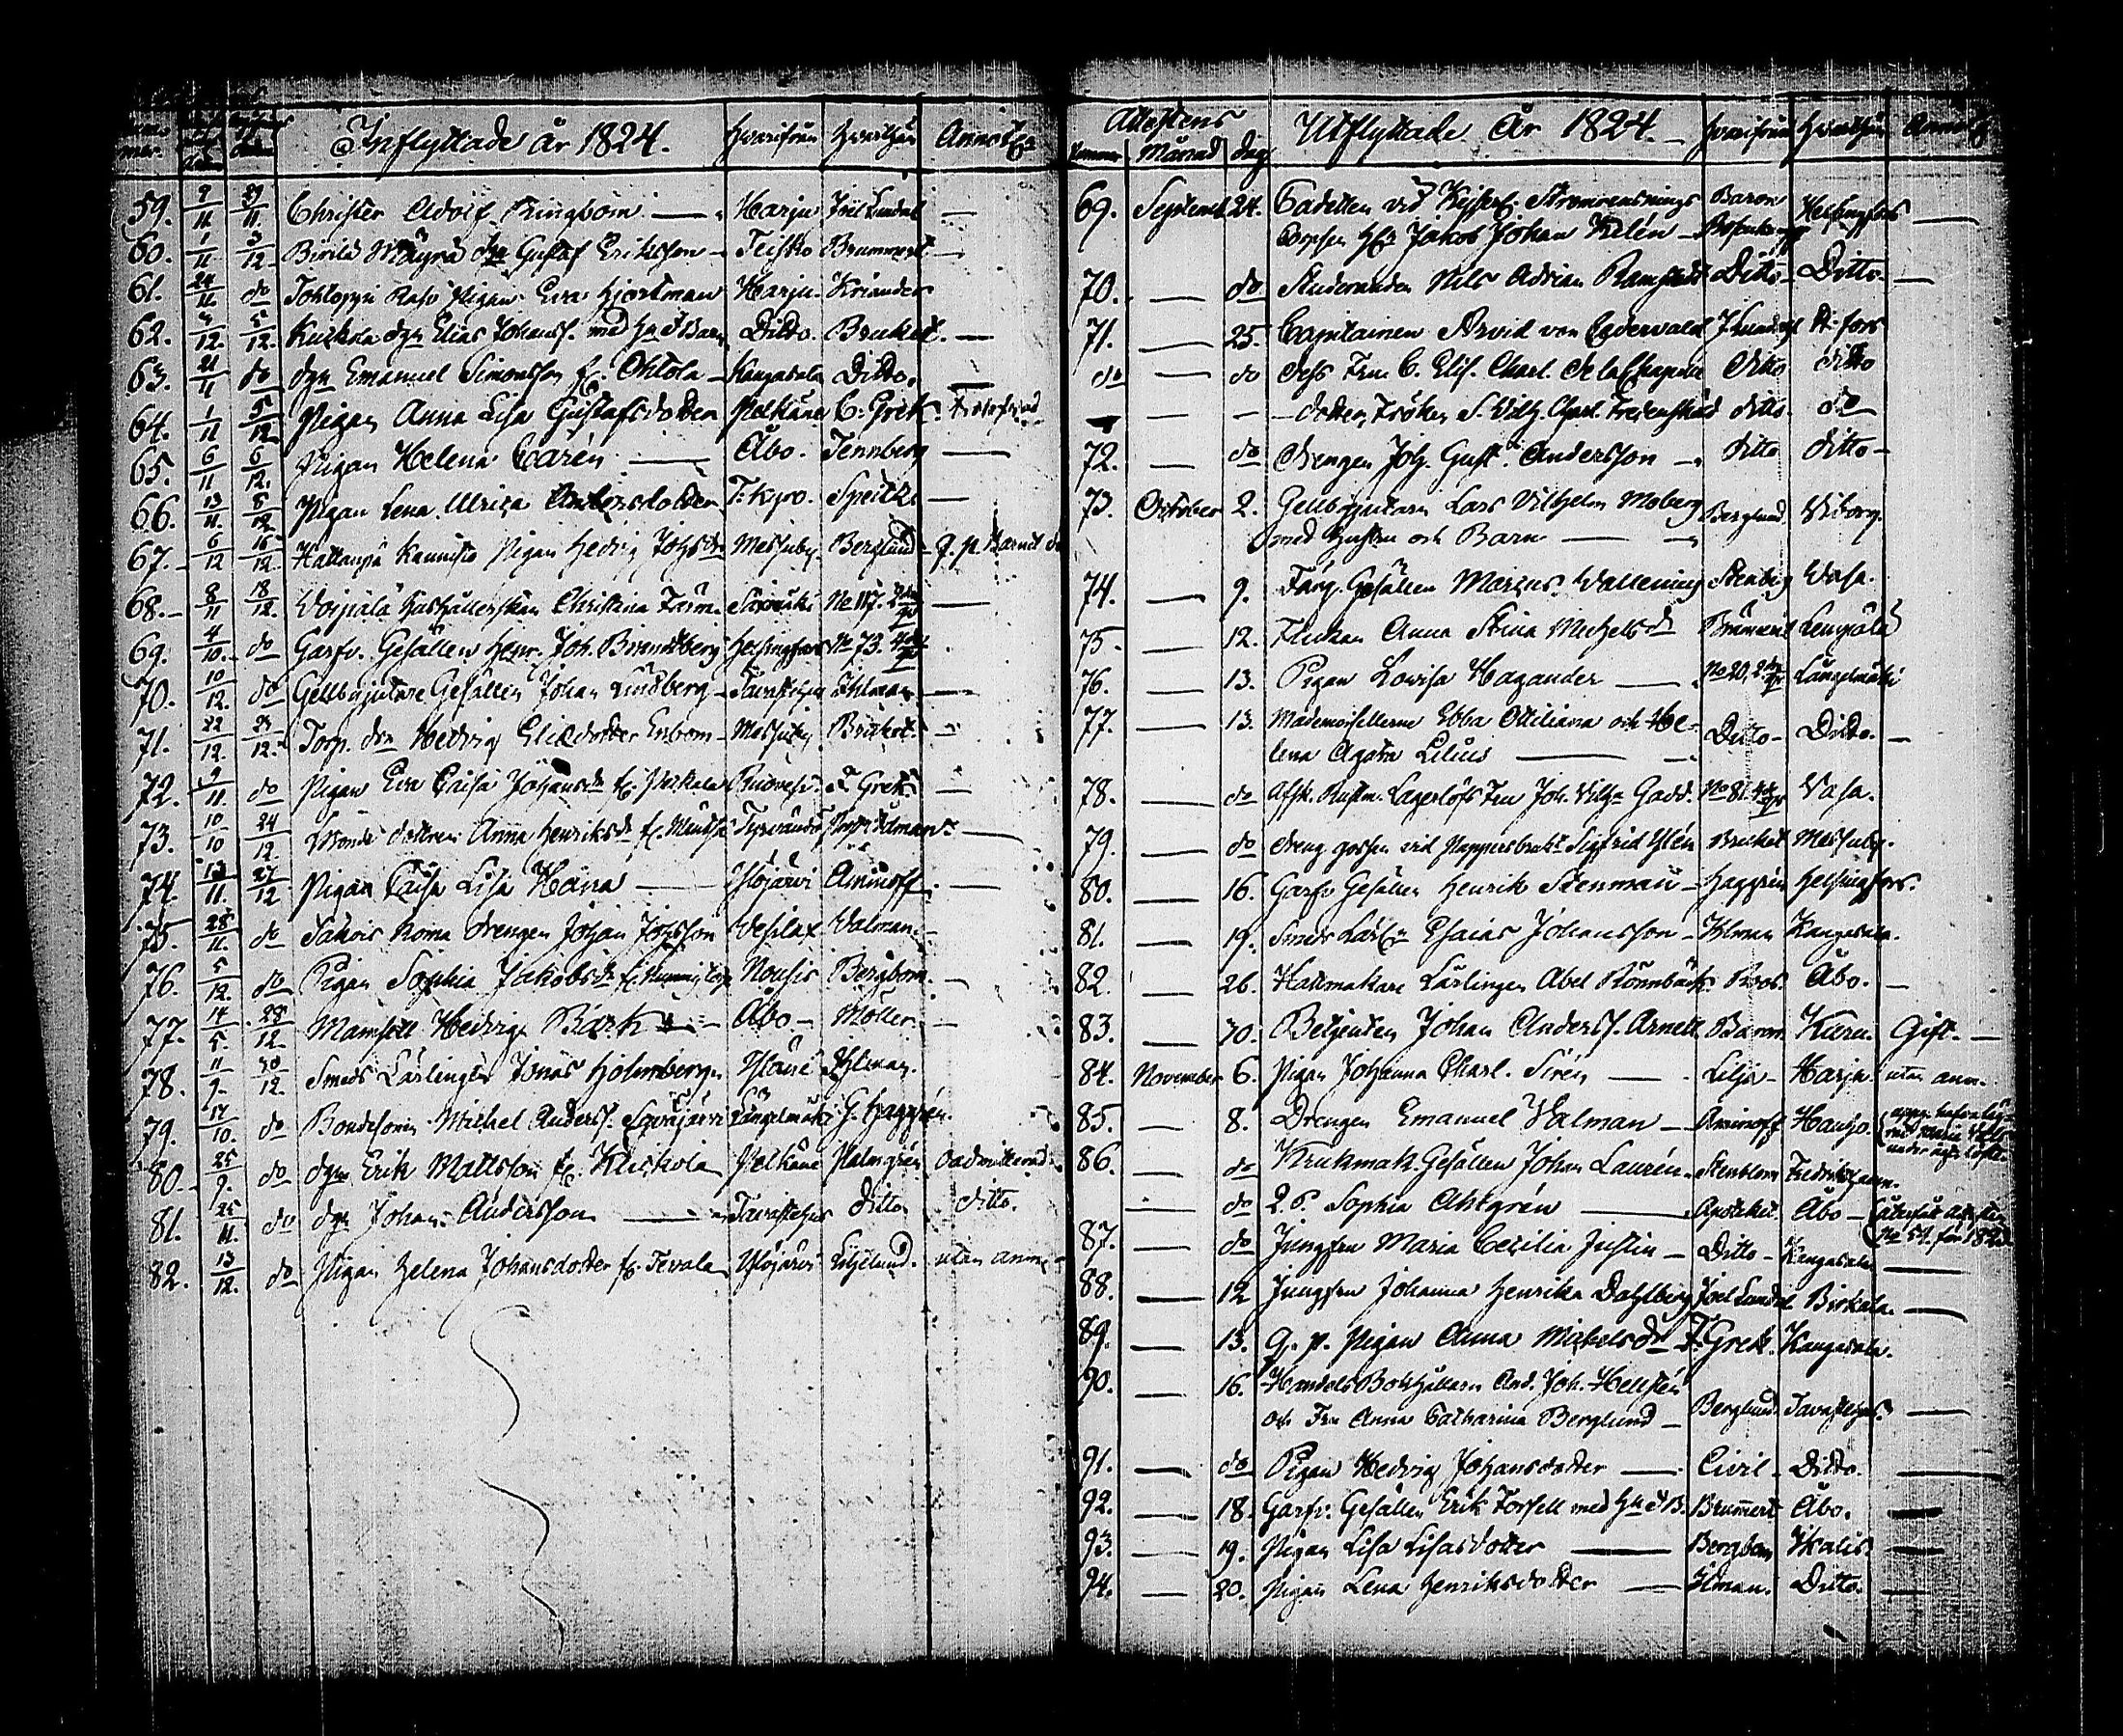 Inflyttade år 1824. Hvarifrån Hvarthän Annot:r
59. 9/11 29/11 Christer Adolf Ringbom — Harju Joel Lundal —
60. 1/11 3/12 Birila Mäyrä dgn Gustaf Eriksson — Teisko Brummert —
61. 24/11 do Pigan Eva Hjortman Harju Kriander
62. 4/12 5/12 Kuckola dgn Elias Johanss. med H:u & Barn Ditto. Bruket. —
63. 21/11 do dgn Emanuel Simonsson fr. Ohtola — Kangasala Ditto. —
64. 1/11 5/12 Pigan Anna Lisa Gustafsdotter Pelkäne C. Grek
65. 6/11 6/12. Pigan Helena Carén — Åbo. Tennberg —
66. 13/11. 8/12 Pigan Lena Ulrica Andersdotter T:kyro. Speitz. —
67. 6/12 16/12. Pigan Hedvig Johsdr Messuby. Berglund — q. p. Barnet do
68. 8/11 18/12. Hushållerskan Christina No 117. —
69. 4/10. do Garfv. Gesällen Henr. Joh. Brandberg Helsingfors No 73.
70. 10/12. do Gellbgjutare Gesällen Johan Lindberg — Tavastehus Ihlman —
71. 22/12. 23/12. Torp. dr Hedvig Eliedotter Enbom — Messuby. Bruket. —
72. 9/11. do Pigan Eva Caisa Johansdr fr. Ruovesi. Grek —
73. 10/10 24/12. Bonde dottren Anna Henriksdr fr. Tyrvändö —
74. 13/11. 27/12 Pigan Caisa Lisa Harra — Ylöjärvi Aminoff. —
75. 28/11. do Drengen Johan Johsson Vesilax Valman. —
76. 5/12. do Pigan Sophia Jakobsdr Nousis Bergbom. —
77. 14/5. 28/12. Mamsell Hedvig Bäck — Åbo — Möller —
78. 11/9. 30/12. Smeds Lärlingen Jonas Holmberg Yläne Ihlman.
79. 17/10. do Bondesonen Michel Anderss. Längelmäki G. Haggrén.
80. 25/9. do dgn Erik Mattsson fr. Kuckola Pelkäne Palmgrén Oadmitterad
81. 25/11. do dgn Johan Andersson — Tavastehus Ditto ditto.
82. 13/12. do Pigan Helena Johansdotter fr. Tevala Ylöjärvi Liljelund. utan anm.
Attestens Utflyttade År 1824. — Hvarifrån Hvarthän Annot:
Nummer Månad dag
69. Septemb 24. Cadetten vid Kejserl.
Corpsen H:r Jakob Johan Kilén — Baron Helsingfors —
70. — do Studeranden Nils Adrian Ramstedt Ditto — Ditto —
71. — 25. Capitainen Arvid von Cedervald J. Lundahl H:fors
do — do dess Fru C. Elis. Charl. De la Chapelle ditto ditto
— — dotter, Fröken S. Vilh. Charl. ditto do
72. — do Drengen Joh. Gust. Andersson — ditto ditto —
73. October 2. Gellbgjutaren Lars Vilhelm Moberg
med Hustru och Barn — Berglund Viborg.
74. — 9. Färg. Gesällen Marcus Wallenius Stenberg Wasa.
75. — 12. Flickan Anna Stina Michelsdr Brummert Lempälä
76. — 13. Pigan Lovisa Hagander — No 20, 2 Längelmäki
77. — 13. Mademoisellerne Ebba Ottiliana och He-
lena Agatha Lilius — Ditto — Ditto. —
78. — do Afsk. Rustm. Lagerlöfs Fru Joh. Vilh:a Gadd. No 81. Vasa.
79. — do Dreng gossen vid Pappersbruket Sigfrid Ylén Bruket Messuby.
80. — 16. Garfv. Gesällen Henrik Stenman — Haggrén Helsingfors.
81. — 19. Smeds Lärl:n Esaias Johansson — Ihlman Kangasala.
82. — 26. Hattmakare Lärlingen Abel Rönnbäck. Roos. Åbo. —
83. — 30. Betjenten Johan Anderss. Arnell Baron Karu. Gift. —
84. November 6. Pigan Johanna Charl. Sirén — Lilja — Harju utan anm.
85. — 8. Drengen Emanuel Valman — Aminoff Hauho.
86. — do Krukmak. Gesällen Johan Laurén. Stenblom Fredrikshamn.
do Q. P. Sophia Ahlgrén — Apotheket. Åbo — återfick attesten No 51. för 1823
87. — do Jungfru Maria Cecilia Justin — Ditto — Kangasala —
88. — 12 Jungfru Johanna Henrika Dahlberg Joel Lundal Birkala. —
89. — 13. q. p. Pigan Anna Michelsdr F. Grek. Kangasala.
90. — 16. Handels Bokhållaren And. Joh. Hellstén
och Fru Anna Catharina Berglund — Berglund Tavastehus. —
91. — do Pigan Hedvig Johansdotter — Civil — Ditto. —
92. — 18. Garfv. Gesällen Erik Forsell med H:u & B. Brummert Åbo. —
93. — 19. Pigan Lisa Lisasdotter — Bergbom Ikalis. —
94. — 20. Pigan Lena Henriksdotter — Ihlman. Ditto. —